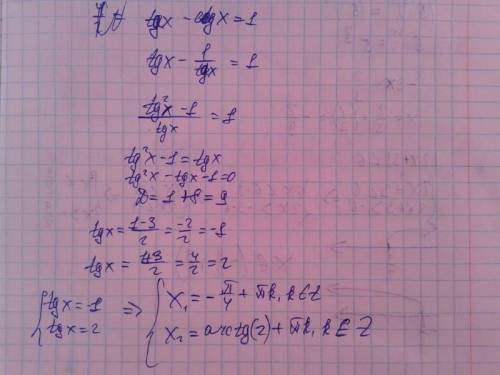 tgx - ctgx = 1
tgx - 1/tgx = 1
(tg²x - 1)/tgx = 1
tg²x - 1 = tgx
tg²x - tgx - 1 = 0
D = 1 + 8 = 9
tgx = (1-3)/2 = -2/2 = -1
tgx = (1+3)/2 = 4/2 = 2
{ tgx = -1 => { x₁ = -π/4 + πk, k ∈ Z
tgx = 2 x₂ = arctg(2) + πk, k ∈ Z